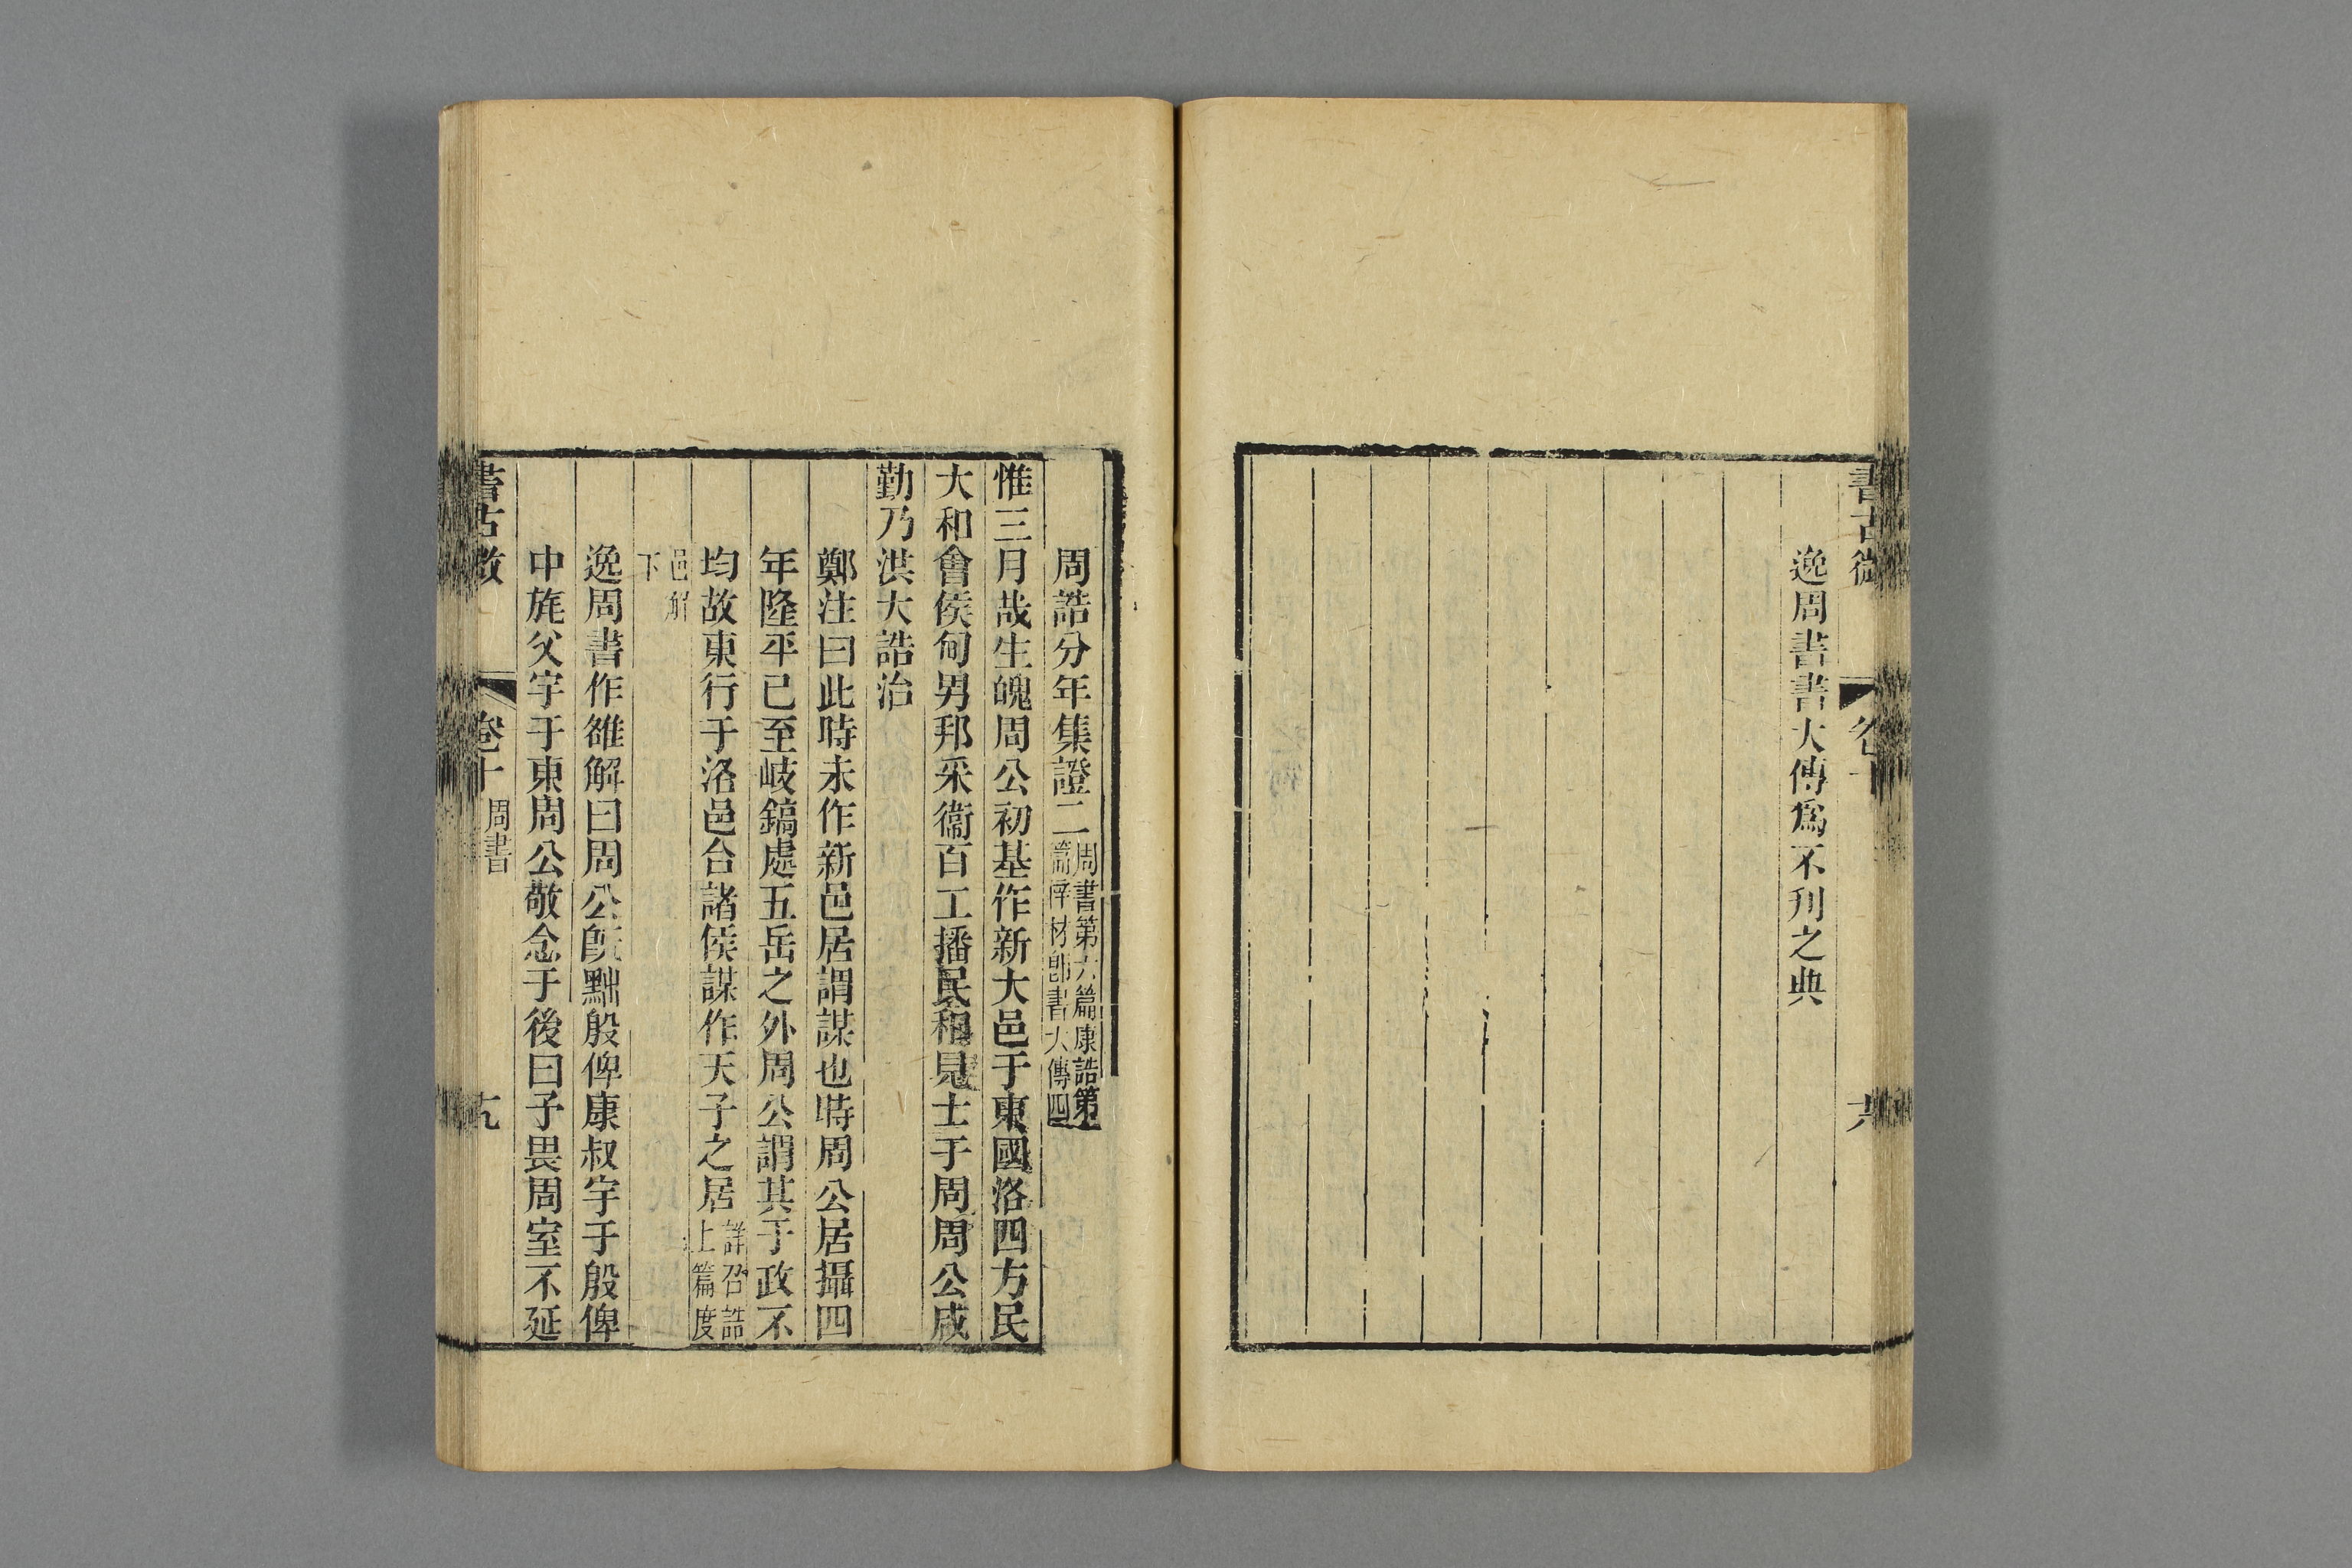 書古微
卷十
六
逸周書書大傳爲不刋之典
周誥分年集證二
周書第六篇康誥第五
篇梓材卽書大傳四
惟三月哉生魄周公初基作新大邑于東國洛四方民
大和會侯甸男邦采衞百工播民和見士于周周公咸
勤乃洪大誥治
鄭注曰此時未作新邑居謂謀也時周公居攝四
年隆平已至岐鎬處五岳之外周公謂其于政不
均故東行于洛邑合諸侯謀作天子之居
詳召誥
上篇度
邑解
下
逸周書作雒解曰周公旣黜殷俾康叔宇于殷俾
中旄父宇于東周公敬念于後曰予畏周室不延
書古微
卷十
周書